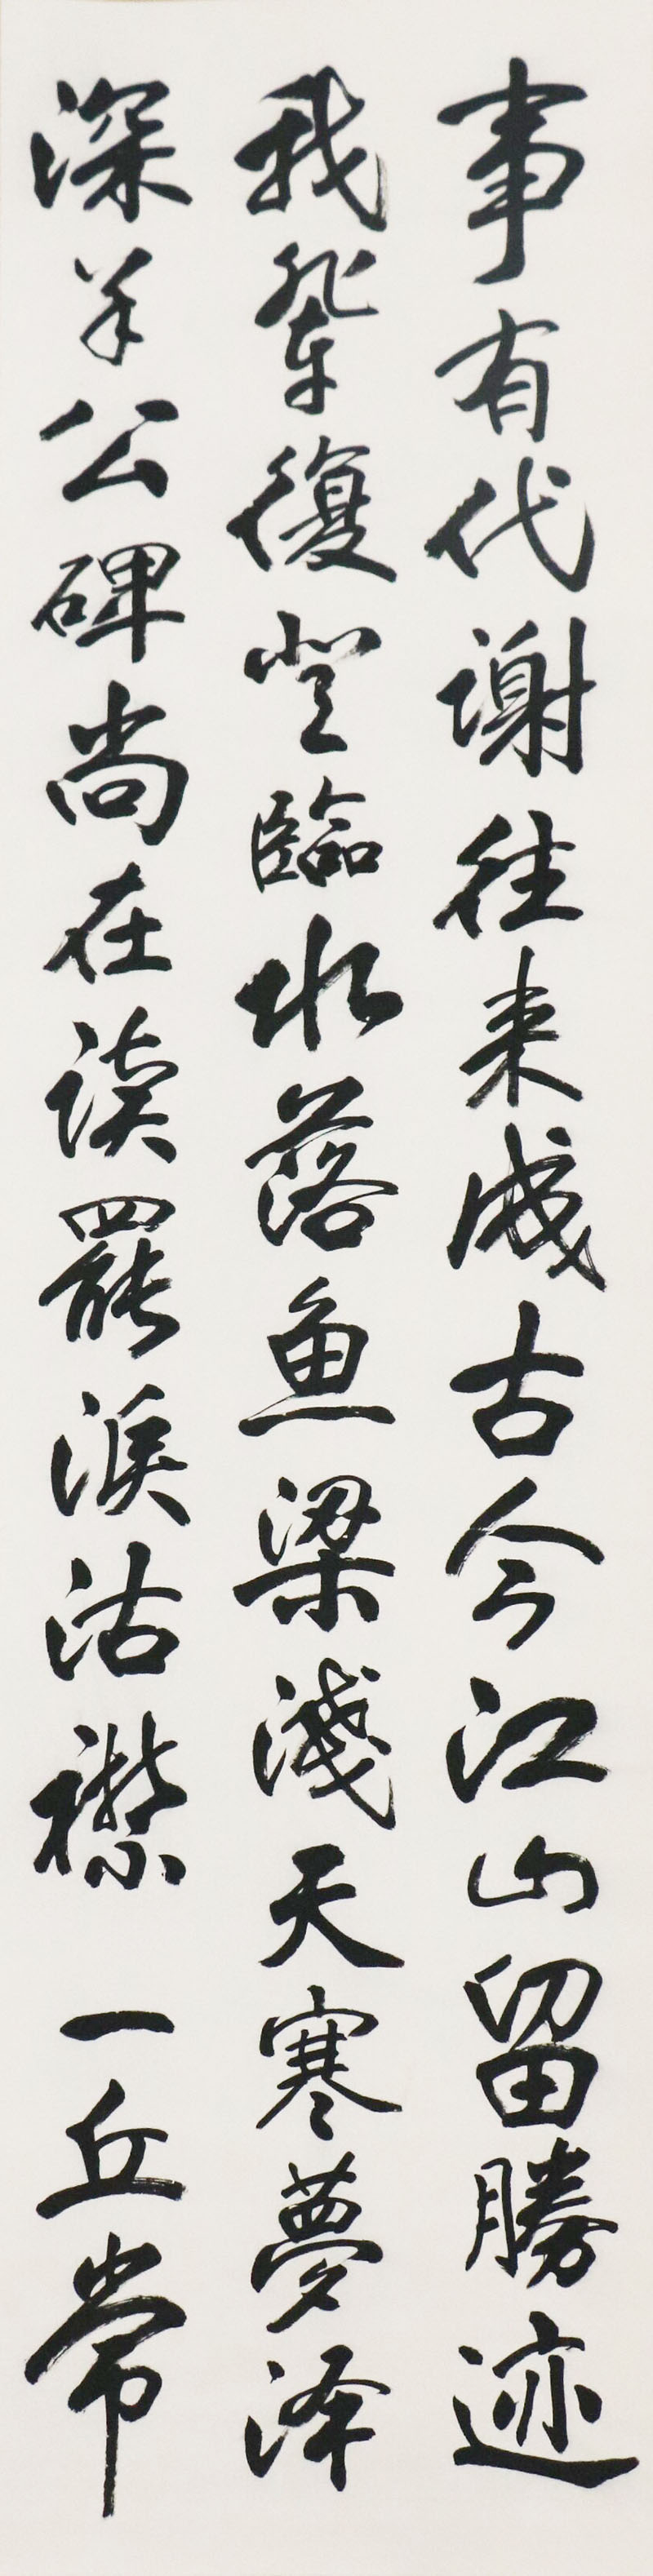 事有代谢往来成古今江山留勝迹
我輩復登臨水落鱼梁淺天寒夢泽
深羊公碑尚在读罷淚沾襟一丘常